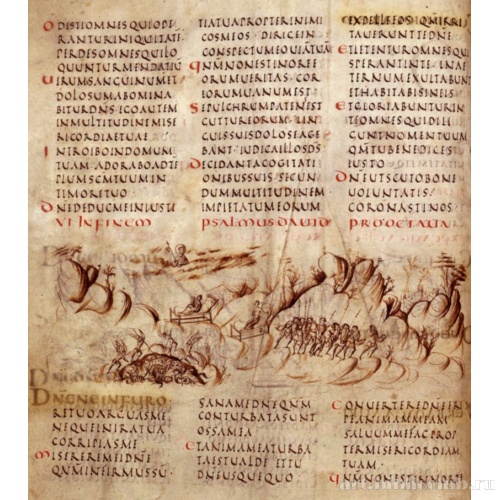 ODISTIOMNESQUIOPE
RANTURINIQUITATE
PERDESOMNESQUILO
QUUNTURMENDATIŪ
UIRUMSANGUINUMET
DOLOSUMABOMINA
BITURDNS·EGOAUTEM
INMULTITUDINEMISE
RICORDIAETUAE·
INTROIBOINDOMUM
TUAM·ADORABOADTE
PLUMSCMTUUMIN
TIMORETUO·
DNEDEDUCMEINIUSTI
TIATUAPROPTERINIMI
COSMEOS·DIRIGEIN
CONSPECTUMEOUIĀTUĀ
QMNONESTINOREE
ORUMUERITAS·COR
EORUMUANUMEST
SEPULCHRUMPATENEST
GUTTUREORUM·LIN
GUISSUISDOLOSEAGE
BANT·IUDICAILLOSDS
DECIDANTACOGITATI
ONIBUSSUIS·SECUN
DUMMULTITUDINEM
IMPIETATUMEORUM
EXPELLEEOS·QMIRRI
TAUERUNTTEDNE
ETLETENTUROMNESQUI
SPERANTINTE·INAE
TERNUMEXULTABUNT
ETHABITABISINEIS
ETGLORIABUNTURIN
TEOMNESQUIDILI
GUNTNOMENTUUM
QMTUBENEDICES
IUSTO
DNEUTSCUTOBONE
UOLUNTATIS·
CORONASTINOS·
VI INFINEM PSALMUSDAUID PROOCTAUA
DNENEINFURO
RETUOARGUASME
NEQUEINIRATUA
CORRIPIASME
MISEREREMEIDNE
QMINFIRMUSSU·
SANAMEDNEQNM
CONTURBATASUNT
OSSAMEA
ETANIMAMEATURBA
TAESTUALDE·ETTU
DNEUSQUEQUO
CONUERTEREDNEERI
PEANIMAMMEAM
SALUUMMEFACPROP
TERMISERICORDIAM
TUAM·
QMNONESTINMORTE